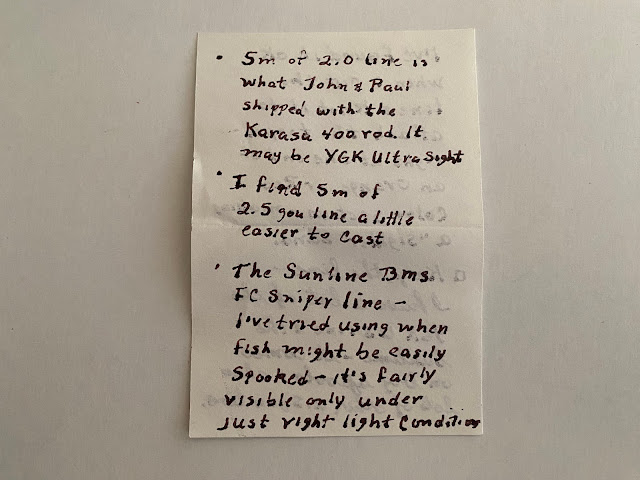 • 5m of 2.0 line is
what John & Paul
shipped with the
Karasu 400 rod. It
may be YGK Ultra Sight
• I find 5m of
2.5 gou line a little
easier to cast
• The Sunline Bms.
FC Sniper line –
I've tried using when
fish might be easily
spooked – it's fairly
visible only under
just right light condition